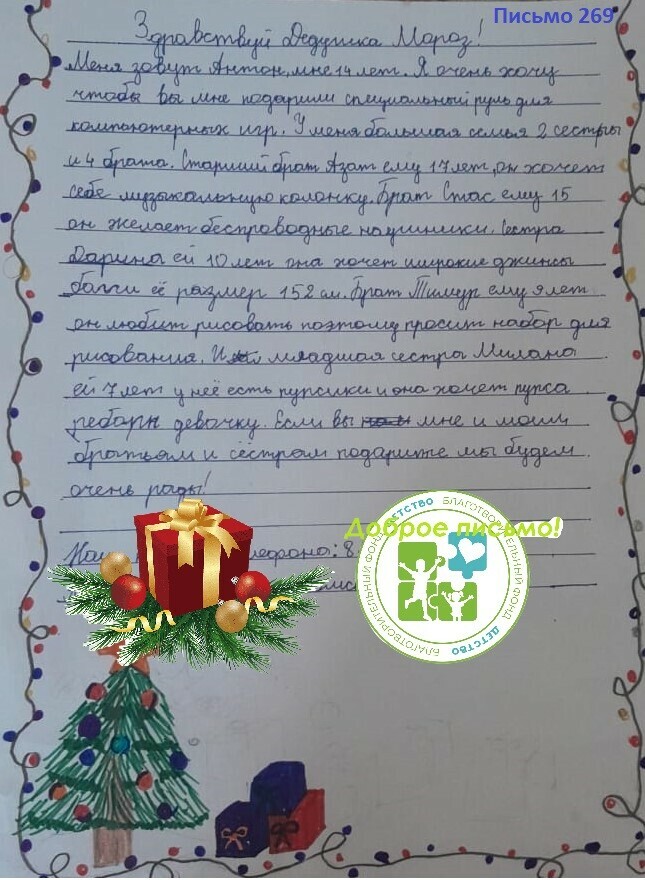 Письмо 269
Здравствуй Дедушка Мороз!
Меня зовут Антон, мне 14 лет. Я очень хочу
чтобы вы мне подарили специальный руль для
компьютерных игр. У меня большая семья 2 сестры
и 4 брата. Старший брат Азат ему 17 лет, он хочет
себе музыкальную колонку. Брат Стас ему 15
он желает беспроводные наушники. Сестра
Дарина ей 10 лет она хочет широкие джинсы
багги её размер 152 см. Брат Тимур ему 9 лет
он любит рисовать поэтому просит набор для
рисования. И младшая сестра Милана
ей 7 лет у неё есть пупсики и она хочет пупса
реборн девочку. Если вы мне и моим
братьям и сёстрам подарите мы будем
очень рады!
Доброе письмо!
БЛАГОТВОРИТЕЛЬНЫЙ ФОНД ДЕТСТВО
БЛАГОТВОРИТЕЛЬНЫЙ ФОНД ДЕТСТВО
8